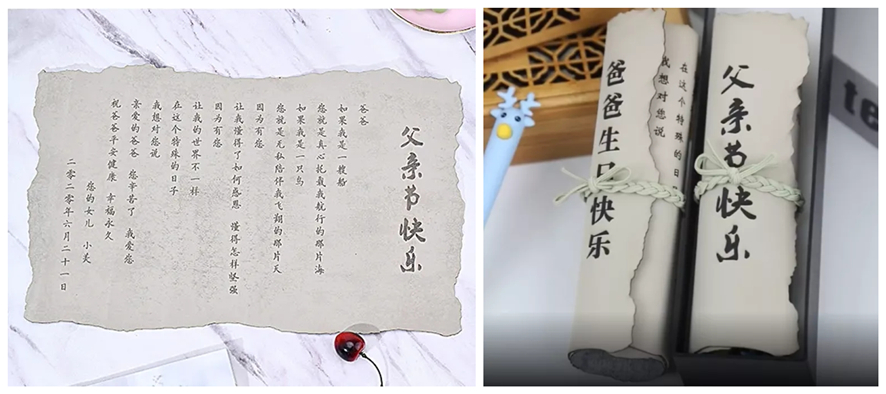 父亲节快乐
爸爸
如果我是一艘船
您就是真心托载我航行的那片海
如果我是一只鸟
您就是无私陪伴我飞翔的那片天
因为有您
让我懂得了如何感恩 懂得怎样坚强
因为有您
让我的世界不一样
在这个特殊的日子
我想对您说
亲爱的爸爸 您辛苦了 我爱您
祝爸爸平安健康 幸福永久
您的女儿 小美
二零二零年六月二十一日
在这个特殊的日
我想对您说
爸爸生日快乐
父亲节快乐
te